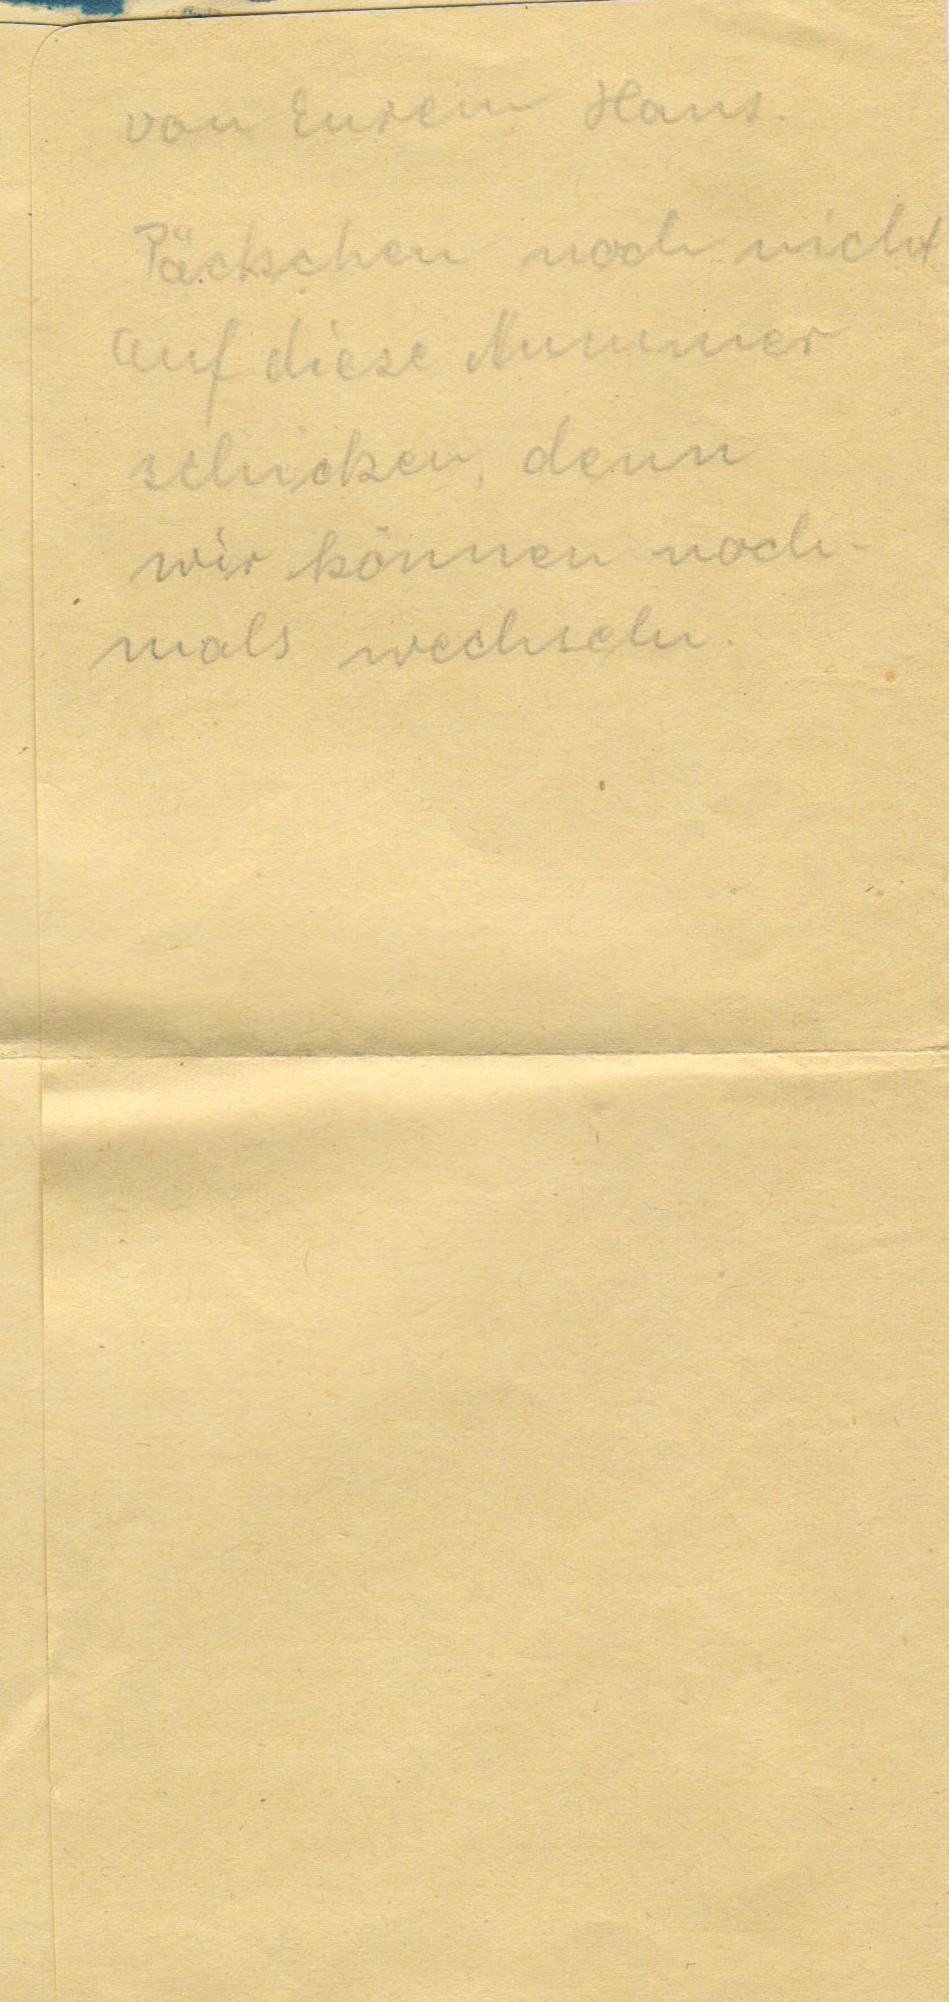 von Eurem Hans.
Päckschen noch nicht
auf diese Nummer
schicken, denn
wir können noch-
mals wechseln.